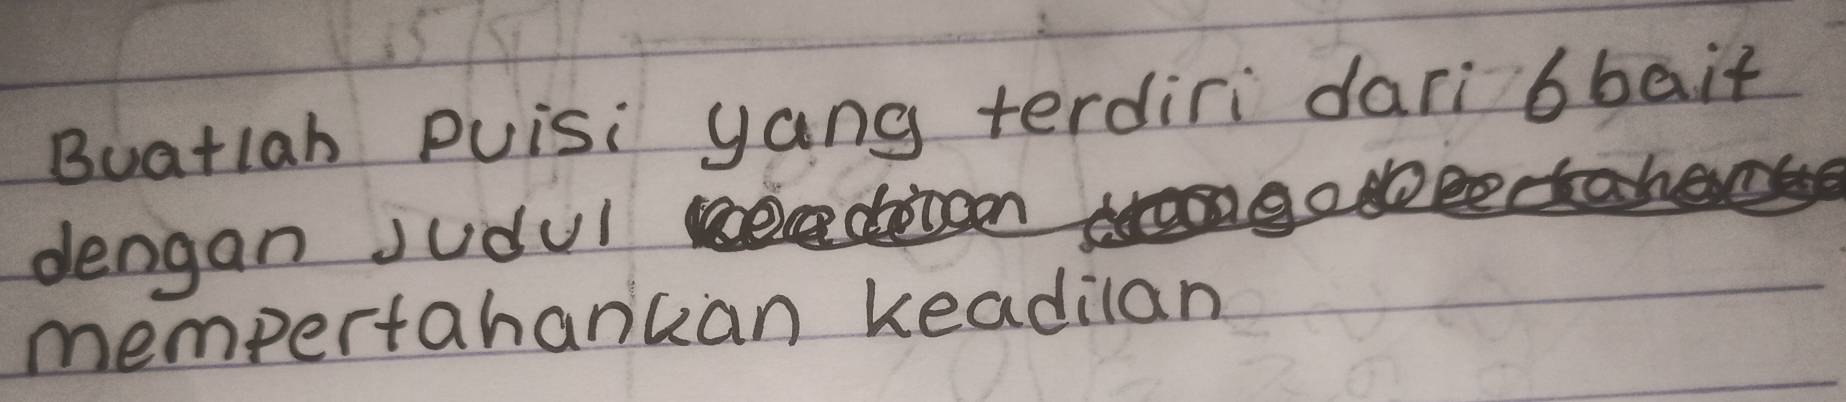 Buatlah puisi yang terdiri dari 6 bait
dengan judul
mempertahankan keadilan